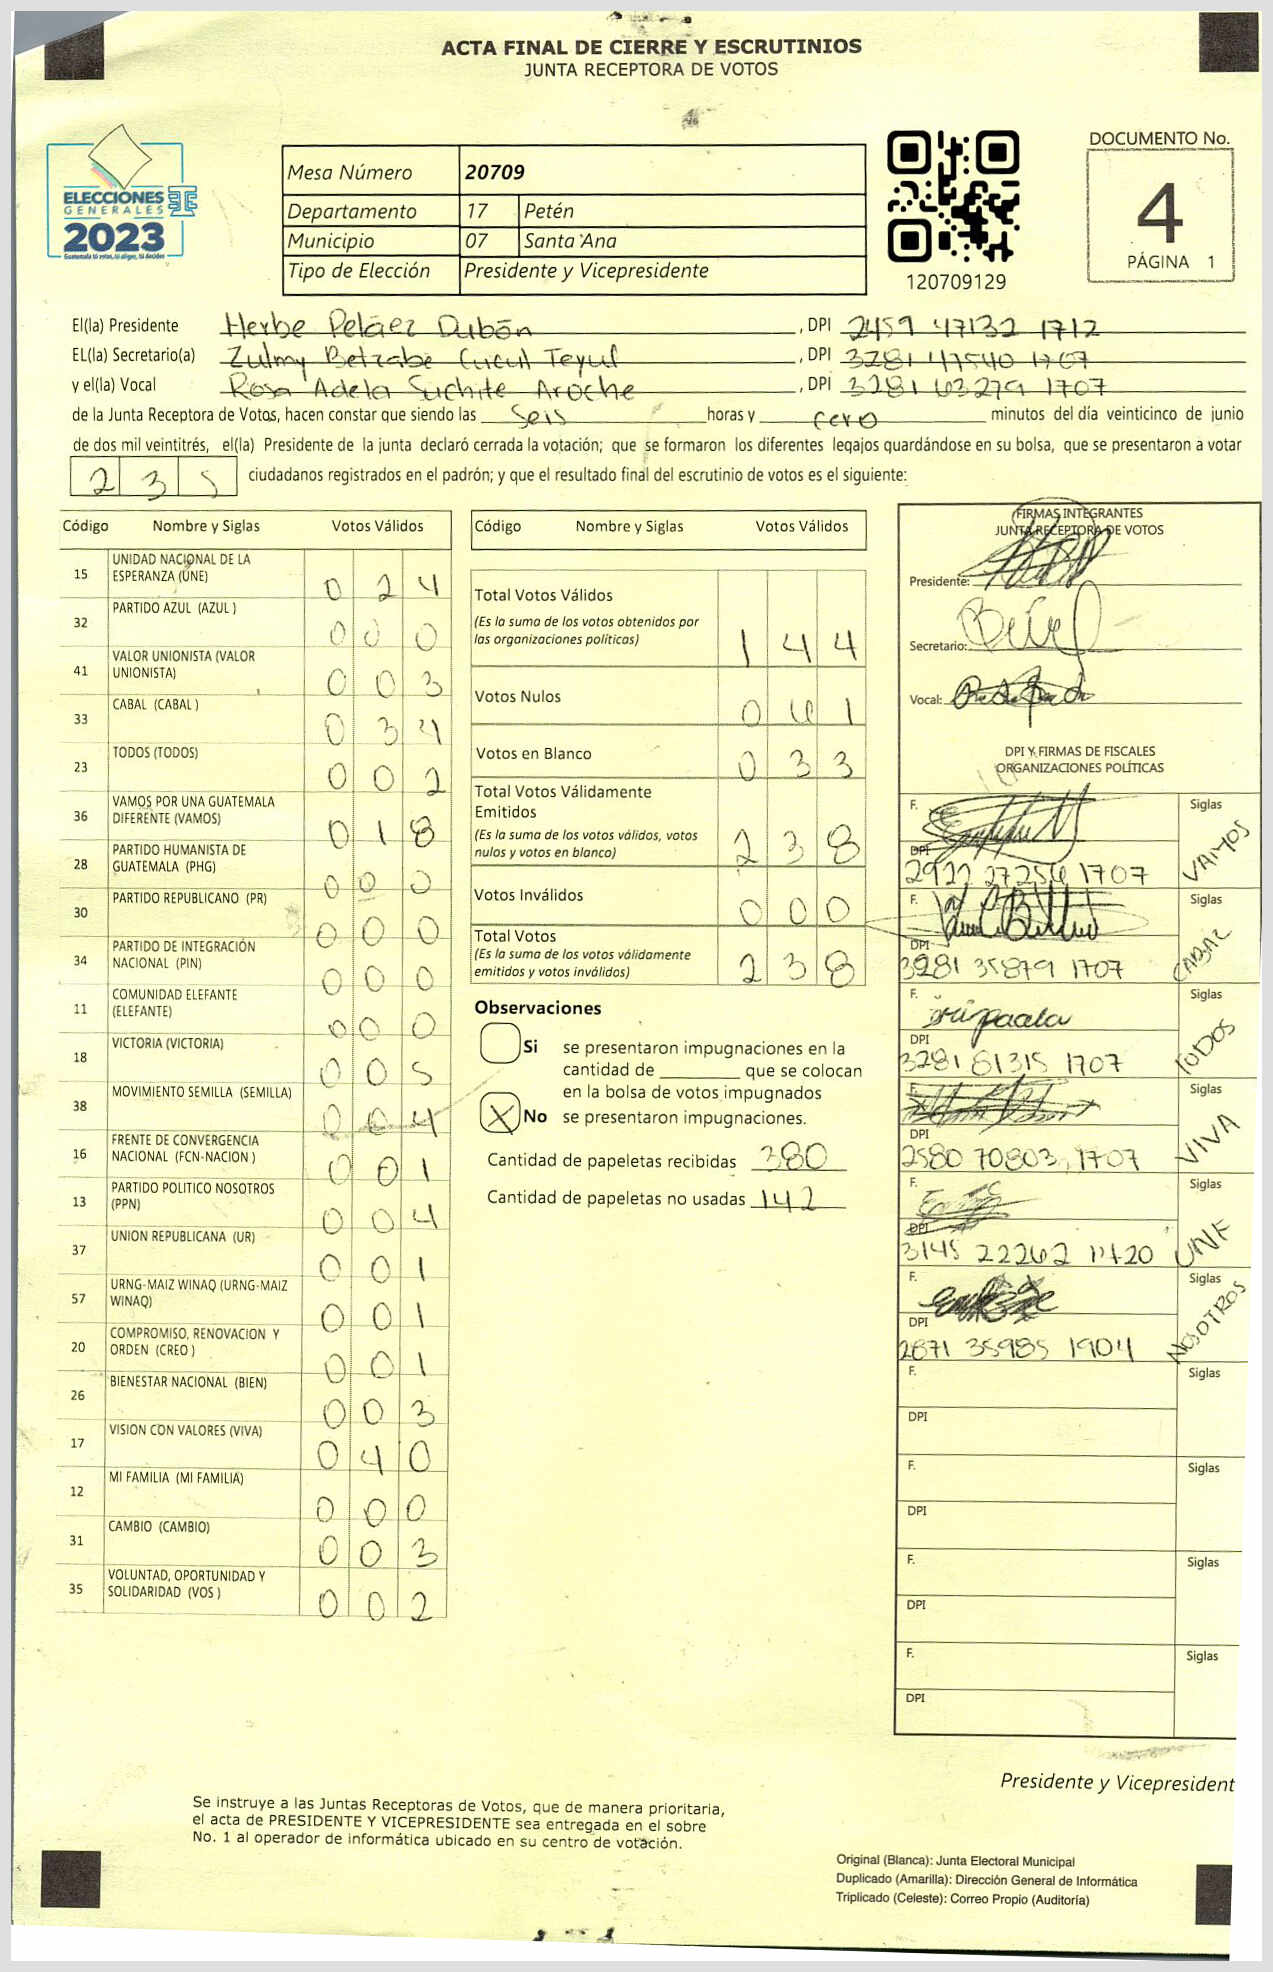 ACTA FINAL DE CIERRE Y ESCRUTINIOS
JUNTA RECEPTORA DE VOTOS
ELECCIONES
GENERALES
2023
Guatemala tú votas, tú eliges, tú decides
Mesa Número 20709
Departamento 17 Petén
Municipio 07 Santa Ana
Tipo de Elección Presidente y Vicepresidente
120709129
DOCUMENTO No.
4
PÁGINA 1
El(la) Presidente Herbe Peláez Dubón, DPI 2459 47132 1712
EL(la) Secretario(a) Zulmy Betzabe Cucul Teyul, DPI 3281 47540 1707
y el(la) Vocal Rosa Adela Suchite Aroche, DPI 3281 63279 1707
de la Junta Receptora de Votos, hacen constar que siendo las seis horas y cero minutos del día veinticinco de junio
de dos mil veintitrés, el(la) Presidente de la junta declaró cerrada la votación; que se formaron los diferentes legajos guardándose en su bolsa, que se presentaron a votar
2 3 5 ciudadanos registrados en el padrón; y que el resultado final del escrutinio de votos es el siguiente:
Código Nombre y Siglas Votos Válidos
15 UNIDAD NACIONAL DE LA ESPERANZA (UNE) 0 2 4
32 PARTIDO AZUL (AZUL ) 0 0 0
41 VALOR UNIONISTA (VALOR UNIONISTA) 0 0 3
33 CABAL (CABAL ) 0 3 4
23 TODOS (TODOS) 0 0 2
36 VAMOS POR UNA GUATEMALA DIFERENTE (VAMOS) 0 1 8
28 PARTIDO HUMANISTA DE GUATEMALA (PHG) 0 0 0
30 PARTIDO REPUBLICANO (PR) 0 0 0
34 PARTIDO DE INTEGRACIÓN NACIONAL (PIN) 0 0 0
11 COMUNIDAD ELEFANTE (ELEFANTE) 0 0 0
18 VICTORIA (VICTORIA) 0 0 5
38 MOVIMIENTO SEMILLA (SEMILLA) 0 0 4
16 FRENTE DE CONVERGENCIA NACIONAL (FCN-NACION ) 0 0 1
13 PARTIDO POLITICO NOSOTROS (PPN) 0 0 4
37 UNION REPUBLICANA (UR) 0 0 1
57 URNG-MAIZ WINAQ (URNG-MAIZ WINAQ) 0 0 1
20 COMPROMISO, RENOVACION Y ORDEN (CREO ) 0 0 1
26 BIENESTAR NACIONAL (BIEN) 0 0 3
17 VISION CON VALORES (VIVA) 0 4 0
12 MI FAMILIA (MI FAMILIA) 0 0 0
31 CAMBIO (CAMBIO) 0 0 3
35 VOLUNTAD, OPORTUNIDAD Y SOLIDARIDAD (VOS ) 0 0 2
Código Nombre y Siglas Votos Válidos
Total Votos Válidos
(Es la suma de los votos obtenidos por
las organizaciones políticas) 1 4 4
Votos Nulos 0 6 1
Votos en Blanco 0 3 3
Total Votos Válidamente
Emitidos
(Es la suma de los votos válidos, votos
nulos y votos en blanco) 2 3 8
Votos Inválidos 0 0 0
Total Votos
(Es la suma de los votos válidamente
emitidos y votos inválidos) 2 3 8
Observaciones
Si se presentaron impugnaciones en la
cantidad de ________ que se colocan
en la bolsa de votos impugnados
X No se presentaron impugnaciones.
Cantidad de papeletas recibidas 380
Cantidad de papeletas no usadas 142
FIRMAS INTEGRANTES
JUNTA RECEPTORA DE VOTOS
Presidente:
Secretario:
Vocal:
DPI Y FIRMAS DE FISCALES
ORGANIZACIONES POLÍTICAS
F. Siglas VAMOS
DPI 2922 27256 1707
F. Siglas CABAL
DPI 3281 35879 1707
F. Siglas TODOS
DPI 3281 81315 1707
F. Siglas VIVA
DPI 2580 70803 1707
F. Siglas UNE
DPI 3145 22262
F. Siglas NOSOTROS
DPI 2871 35985 1904
F. Siglas
DPI
F. Siglas
DPI
F. Siglas
DPI
F. Siglas
DPI
Presidente y Vicepresident
Se instruye a las Juntas Receptoras de Votos, que de manera prioritaria,
el acta de PRESIDENTE Y VICEPRESIDENTE sea entregada en el sobre
No. 1 al operador de informática ubicado en su centro de votación.
Original (Blanca): Junta Electoral Municipal
Duplicado (Amarilla): Dirección General de Informática
Triplicado (Celeste): Correo Propio (Auditoría)